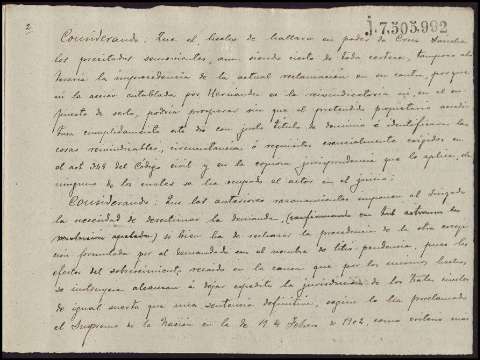 2
j.7.505.992
Considerando: Que el hecho de hallarse en poder de Cross Sánchez
los precitados semovientes, aun siendo cierto de toda certeza, tampoco al
teraria la improcedencia de la actual reclamacion en su contra, porque
ni la accion entablada por Hernández es la reivindicatoria ni, en el su
puesto de serlo, podria prosperar sin que el pretendido propietario acredi
tara cumplidamente al con justo titulo de dominio é identificara las
cosas reivindicables, circunstancias ó requisitos esencialmente exigidos en
el art 348 del Código civil y en la copiosa jurisprudencia que lo aplica, de
ninguno de los cuales se ha ocupado el actor en el juicio:
Considerando: Que los anteriores razonamientos imponen al Juzgado
la necesidad de desestimar la demanda, (confirmando en este extremo la
sentencia apelada) si bien ha de rechazar la procedencia de la otra excep
cion formulada por el demandado con el nombre de litis-pendencia, pues los
efectos del sobreseimiento recaido en la causa que por los mismos hechos
se instruyera alcanzan á dejar expedita la jurisdiccion de los Trales civiles
de igual suerte que una sentencia definitiva, segun lo ha proclamado
el Supremo de la Nación en la de 19 de Febrero de 1902, como certera mas